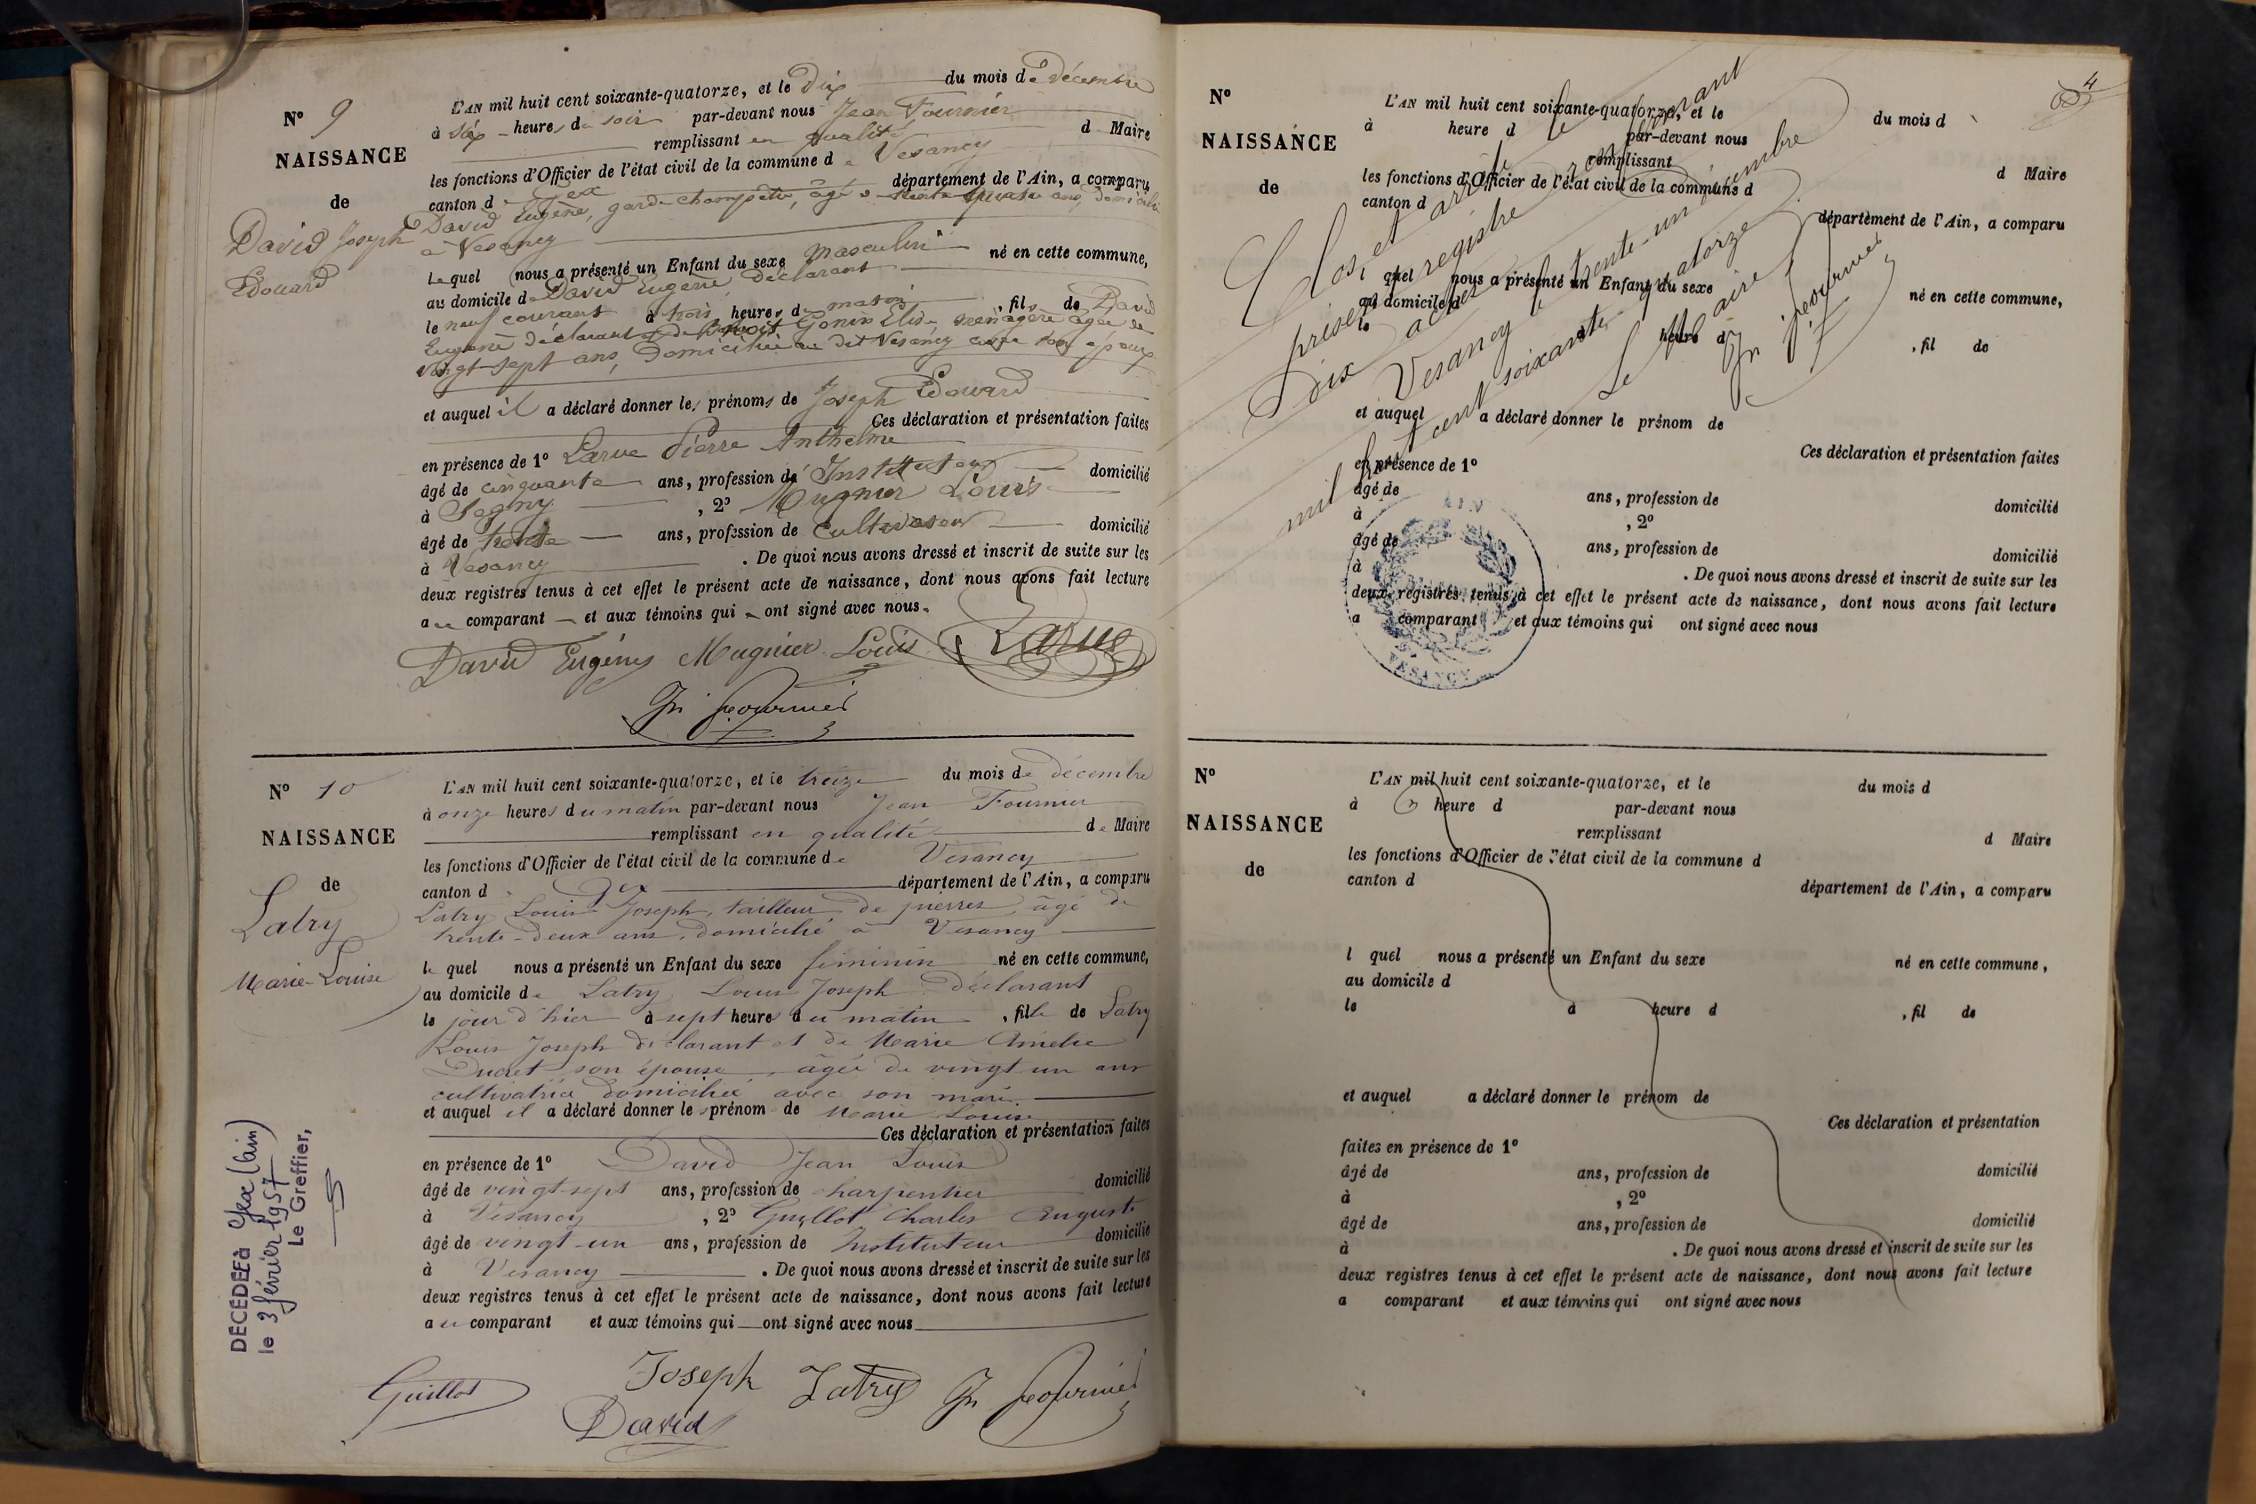 N° 9
NAISSANCE
de
David Joseph
Edouard
L'AN mil huit cent soixante-quatorze, et le dix du mois de décembre
à six heures du soir par-devant nous Jean Fournier
remplissant en qualité de Maire
les fonctions d'Officier de l'état civil de la commune de Vesancy
canton de Gex département de l'Ain, a comparu
David Eugène, garde-champêtre, âgé de trente quatre ans, domicilié
à Vesancy
lequel nous a présenté un Enfant du sexe masculin né en cette commune,
au domicile de David Eugène, déclarant
le neuf courant à trois heures du matin, fils de David
Eugène déclarant et de Gonin Elise, ménagère âgée de
vingt-sept ans, domiciliée au dit Vesancy avec son époux
et auquel il a déclaré donner les prénoms de Joseph Edouard
Ces déclaration et présentation faites
en présence de 1° Larue Pierre Anthelme
âgé de cinquante ans, profession d' Instituteur domicilié
à Segny, 2° Mugnier Louis
âgé de trente ans, profession de cultivateur domicilié
à Vesancy. De quoi nous avons dressé et inscrit de suite sur les
deux registres tenus à cet effet le présent acte de naissance, dont nous avons fait lecture
au comparant et aux témoins qui ont signé avec nous.
David Eugène Mugnier Louis Larue
Jn Fournier
N° 10
NAISSANCE
de
Latry
Marie-Louise
L'AN mil huit cent soixante-quatorze, et le treize du mois de décembre
à onze heures du matin par-devant nous Jean Fournier
remplissant en qualité de Maire
les fonctions d'Officier de l'état civil de la commune de Vesancy
canton de Gex département de l'Ain, a comparu
Latry Louis Joseph, tailleur de pierres, âgé de
trente-deux ans, domicilié à Vesancy
le quel nous a présenté un Enfant du sexe féminin né en cette commune,
au domicile de Latry Louis Joseph déclarant
le jour d'hier à sept heures du matin, fille de Latry
Louis Joseph déclarant et de Marie Amélie
Ducret son épouse, âgée de vingt un ans
cultivatrice domiciliée avec son mari.
et auquel il a déclaré donner le prénom de Marie Louise
Ces déclaration et présentation faites
en présence de 1° David Jean Louis
âgé de vingt-sept ans, profession de charpentier domicilié
à Vesancy, 2° Guillot Charles August.
âgé de vingt-un ans, profession de Instituteur domicilié
à Vesancy. De quoi nous avons dressé et inscrit de suite sur les
deux registres tenus à cet effet le présent acte de naissance, dont nous avons fait lecture
au comparant et aux témoins qui ont signé avec nous
Guillot Joseph Latry Jn Fournier
David
DÉCÉDÉE à Gex (Ain)
le 3 février 1957
Le Greffier,
4
N°
NAISSANCE
de
L'AN mil huit cent soixante-quatorze, et le du mois d
à heure d par-devant nous
remplissant d Maire
les fonctions d'Officier de l'état civil de la commune d
canton d département de l'Ain, a comparu
l quel nous a présenté un Enfant du sexe né en cette commune,
au domicile d
le à heure d , fil de
et auquel a déclaré donner le prénom de
Ces déclaration et présentation faites
en présence de 1°
âgé de ans, profession de domicilié
à , 2°
âgé de ans, profession de domicilié
à . De quoi nous avons dressé et inscrit de suite sur les
deux registres tenus à cet effet le présent acte de naissance, dont nous avons fait lecture
a comparant et aux témoins qui ont signé avec nous
Clos et arrêté le
présent registre renfermant
Dix actes le trente-un décembre
Vesancy
mil huit cent soixante quatorze
Le Maire
Jn Fournier
AIN
VESANCY
N°
NAISSANCE
de
L'AN mil huit cent soixante-quatorze, et le du mois d
à heure d par-devant nous
remplissant d Maire
les fonctions d'Officier de l'état civil de la commune d
canton d département de l'Ain, a comparu
l quel nous a présenté un Enfant du sexe né en cette commune,
au domicile d
le à heure d , fil de
et auquel a déclaré donner le prénom de
Ces déclaration et présentation
faites en présence de 1°
âgé de ans, profession de domicilié
à , 2°
âgé de ans, profession de domicilié
à . De quoi nous avons dressé et inscrit de suite sur les
deux registres tenus à cet effet le présent acte de naissance, dont nous avons fait lecture
a comparant et aux témoins qui ont signé avec nous